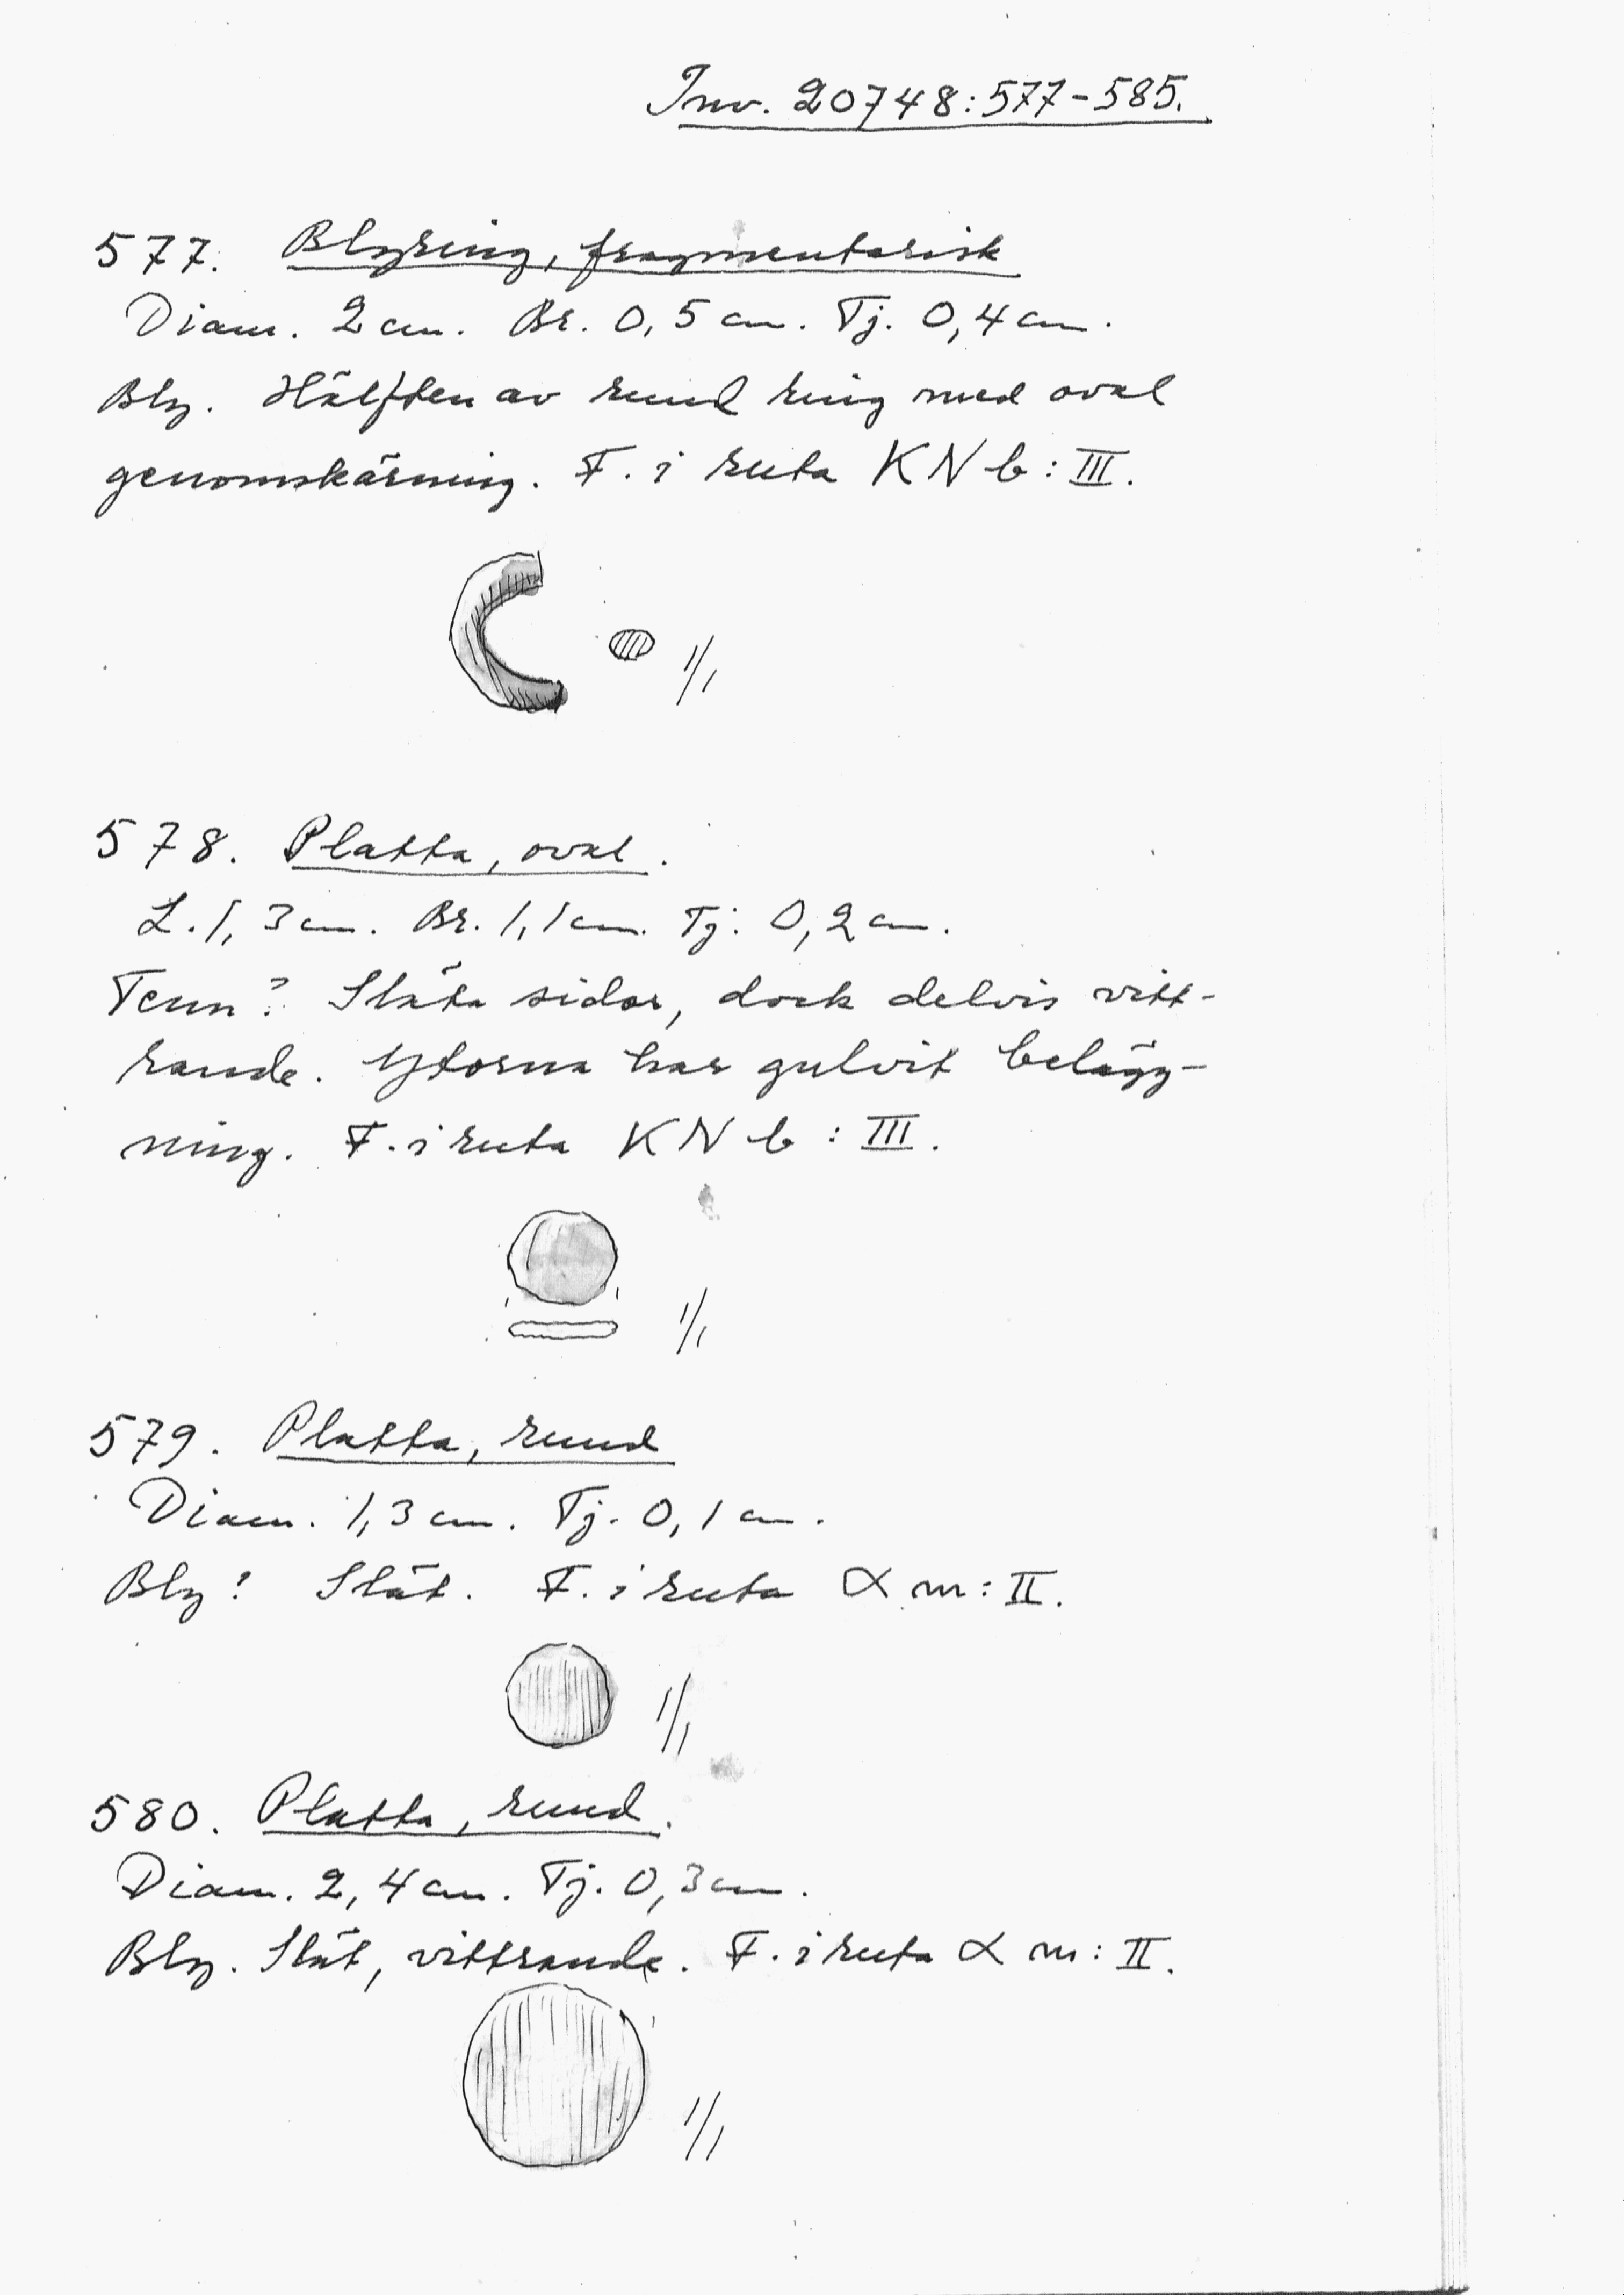 Inv. 20748:577-585.
577. Blyring, fragmentarisk
Diam. 2 cm. Br. 0,5 cm. Tj. 0,4 cm.
Bly. Hälften av rund ring med oval
genomskärning. F. i ruta KN b: III.
1/1
578. Platta, oval.
L. 1,3 cm. Br. 1,1 cm. Tj. 0,2 cm.
Tenn? Släta sidor, dock delvis vitt-
rande. Ytorna har gulvit belägg-
ning. F. i ruta KN b: III.
1/1
579. Platta, rund
Diam. 1,3 cm. Tj. 0,1 cm.
Bly? Slät. F. i ruta α m: II.
1/1
580. Platta, rund.
Diam. 2,4 cm. Tj. 0,3 cm.
Bly. Slät, vittrande. F. i ruta α m: II.
1/1